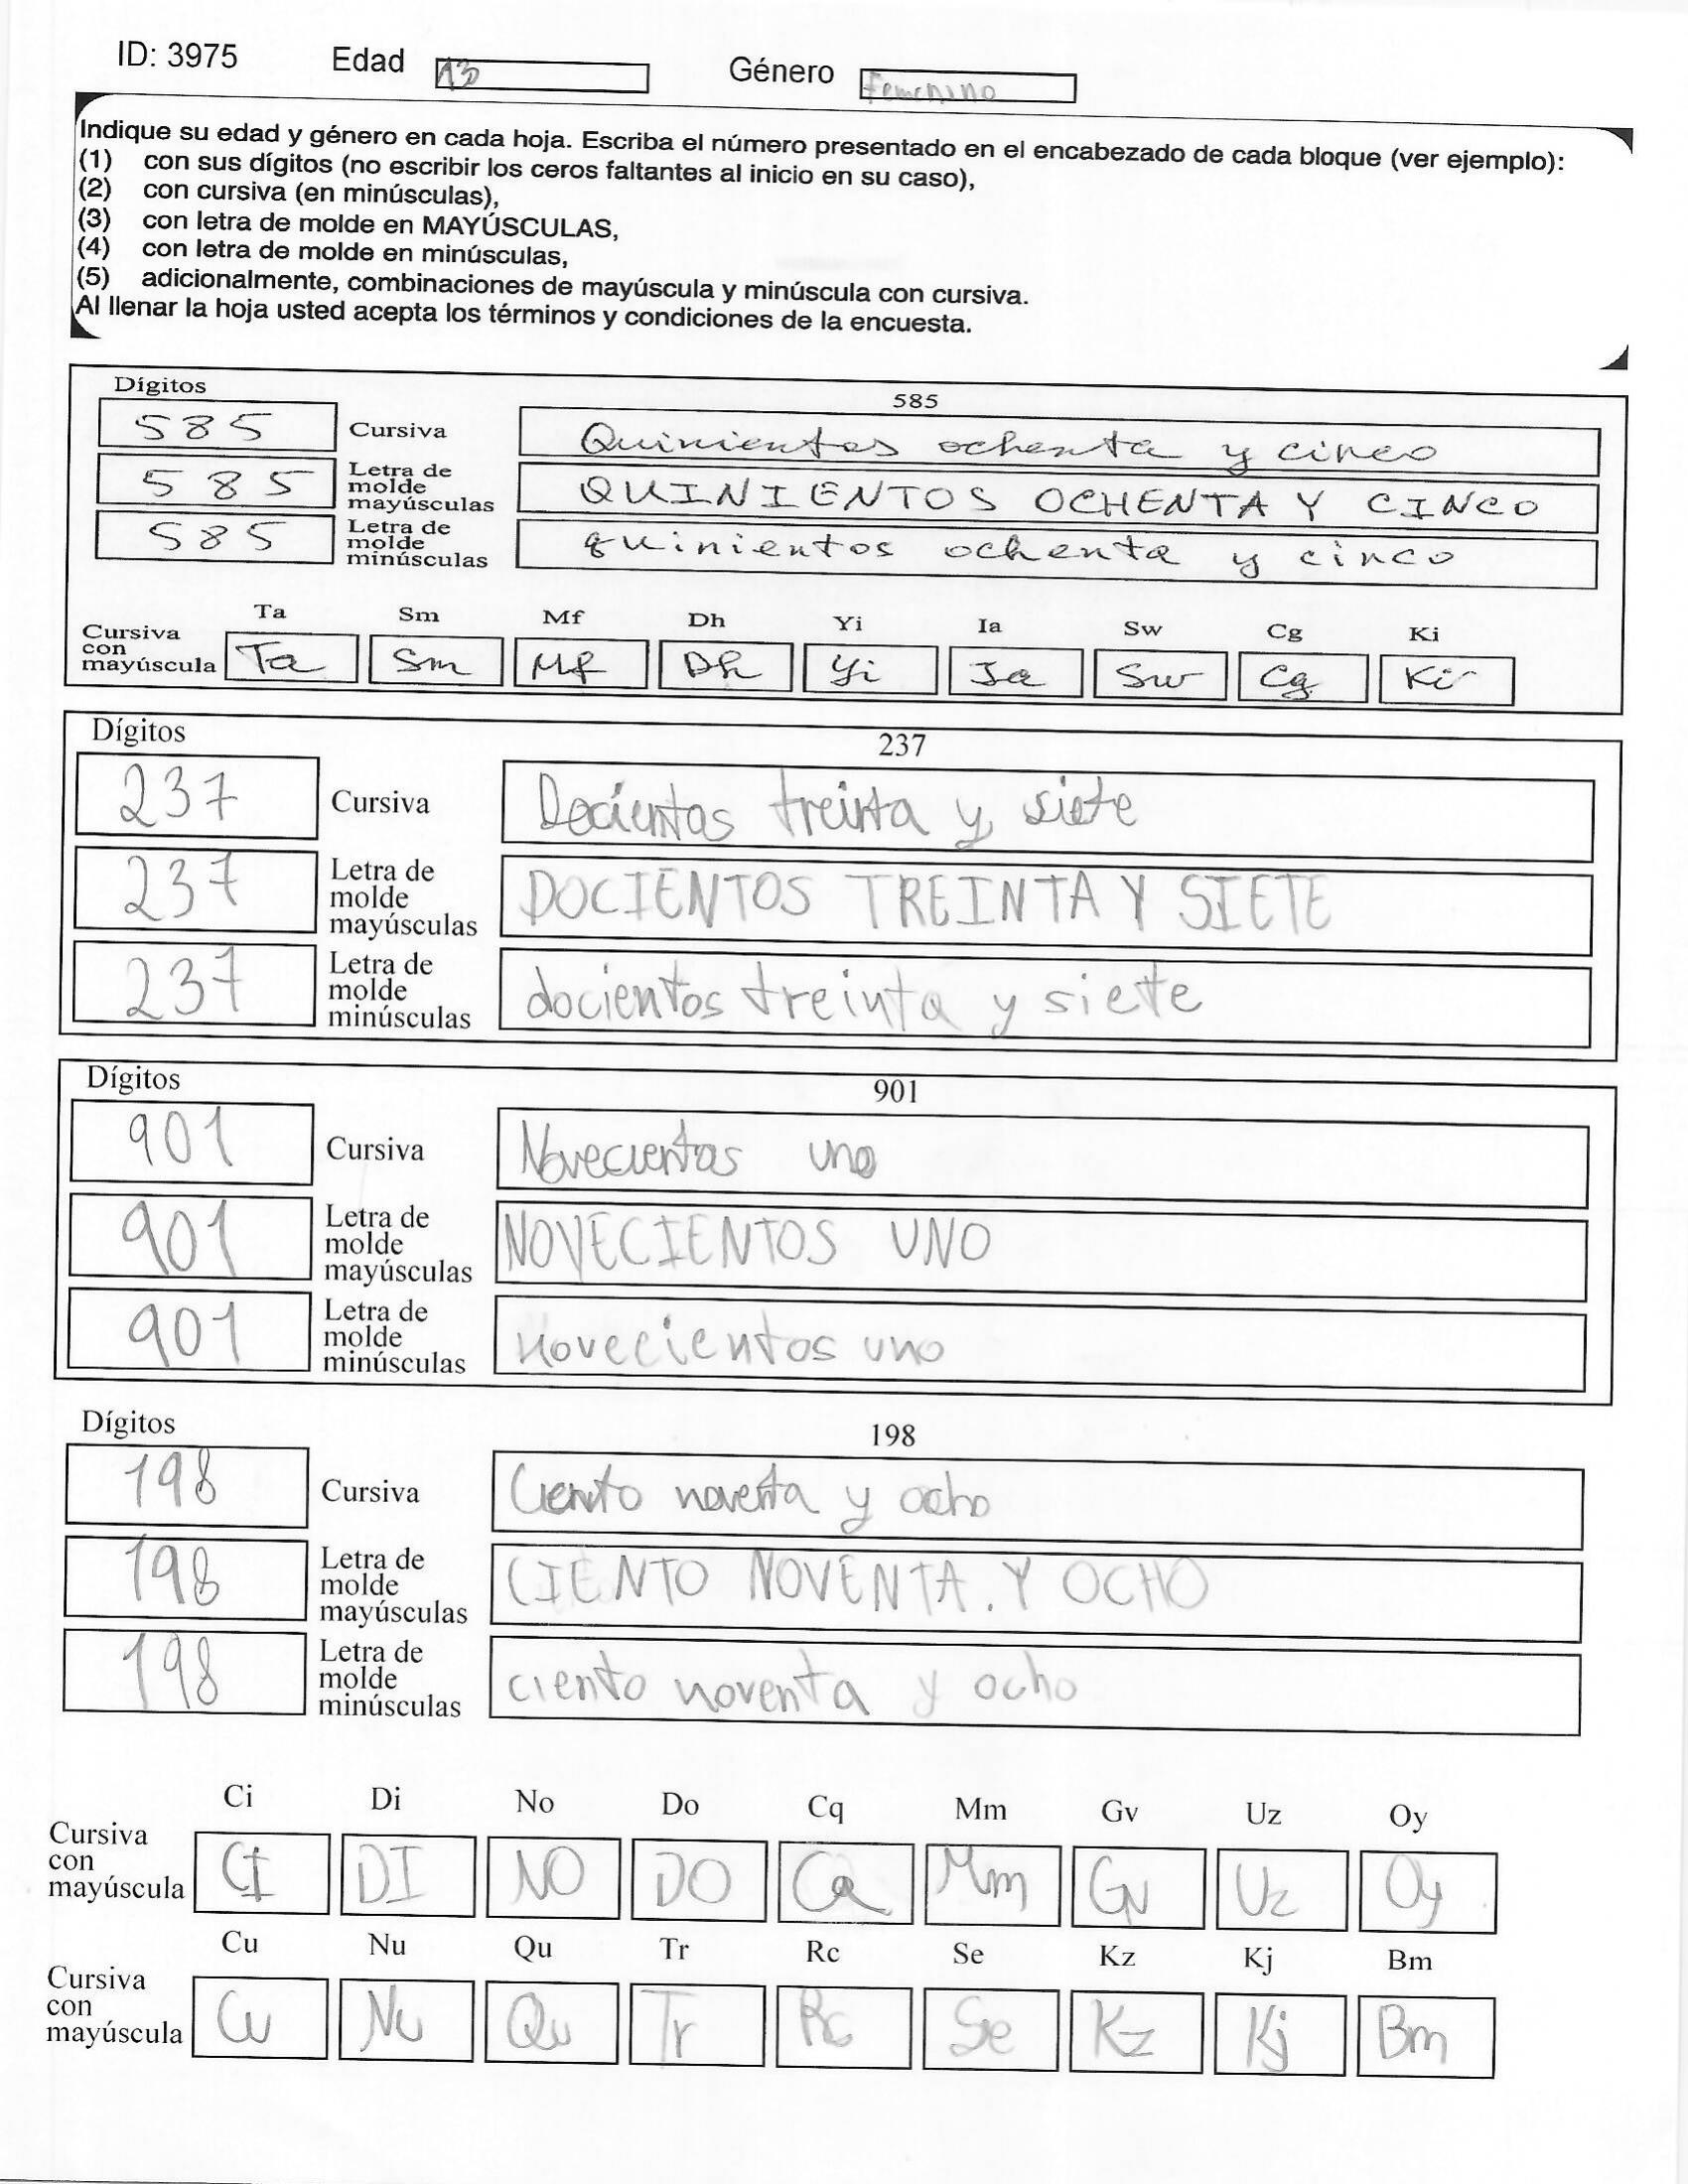 ID: 3975 Edad 13 Género Femenino
Indique su edad y género en cada hoja. Escriba el número presentado en el encabezado de cada bloque (ver ejemplo):
(1) con sus dígitos (no escribir los ceros faltantes al inicio en su caso),
(2) con cursiva (en minúsculas),
(3) con letra de molde en MAYÚSCULAS,
(4) con letra de molde en minúsculas,
(5) adicionalmente, combinaciones de mayúscula y minúscula con cursiva.
Al llenar la hoja usted acepta los términos y condiciones de la encuesta.
Dígitos 585
585 Cursiva Quinientos ochenta y cinco
585 Letra de molde mayúsculas QUINIENTOS OCHENTA Y CINCO
585 Letra de molde minúsculas quinientos ochenta y cinco
Ta Sm Mf Dh Yi Ia Sw Cg Ki
Cursiva con mayúscula Ta Sm Mf Dh Yi Ia Sw Cg Ki
Dígitos 237
237 Cursiva Docientos treinta y siete
237 Letra de molde mayúsculas DOCIENTOS TREINTA Y SIETE
237 Letra de molde minúsculas docientos treinta y siete
Dígitos 901
901 Cursiva Novecientos uno
901 Letra de molde mayúsculas NOVECIENTOS UNO
901 Letra de molde minúsculas novecientos uno
Dígitos 198
198 Cursiva Ciento noventa y ocho
198 Letra de molde mayúsculas CIENTO NOVENTA. Y OCHO
198 Letra de molde minúsculas ciento noventa y ocho
Ci Di No Do Cq Mm Gv Uz Oy
Cursiva con mayúscula CI DI NO DO Cq Mm Gv Uz Oy
Cu Nu Qu Tr Rc Se Kz Kj Bm
Cursiva con mayúscula Cu Nu Qu Tr Rc Se Kz Kj Bm